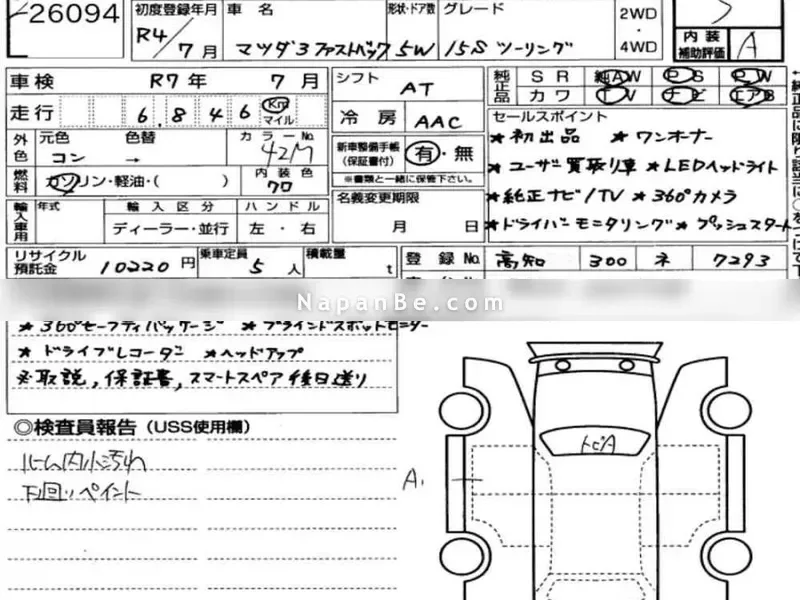 26094
初度登録年月 車名 形状・ドア数 グレード 2WD・4WD
R4/7月 マツダ3 ファストバック 5W 15S ツーリング
内装補助評価 A
車検 R7年 7月 シフト AT 純正品 SR 純AW PS PW
走行 6.846 Km マイル 冷房 AAC カワ TV ナビ エアB
外色 元色 色替 カラーNo. 42M
コン → 新車整備手帳(保証書付) 有・無
※書類と一緒に保管して下さい。
燃料 ガソリン・軽油・( ) 内装色 クロ
セールスポイント
★初出品 ★ワンオーナー
★ユーザー買取り車 ★LEDヘッドライト
★純正ナビ/TV ★360°カメラ
★ドライバーモニタリング ★プッシュスタート
名義変更期限 月 日
輸入車用 年式 輸入区分 ハンドル
ディーラー・並行 左・右
リサイクル預託金 10220円 乗車定員 5人 積載量 t 登録No. 高知 300 ネ 7293
NapanBe.com
★360°セーフティパッケージ ★ブラインドスポットモニター
★ドライブレコーダー ★ヘッドアップ
※取説,保証書,スマートスペア後日送り
◎検査員報告 (USS使用欄)
ルーム内小汚れ
下回りペイント
トビA
A1